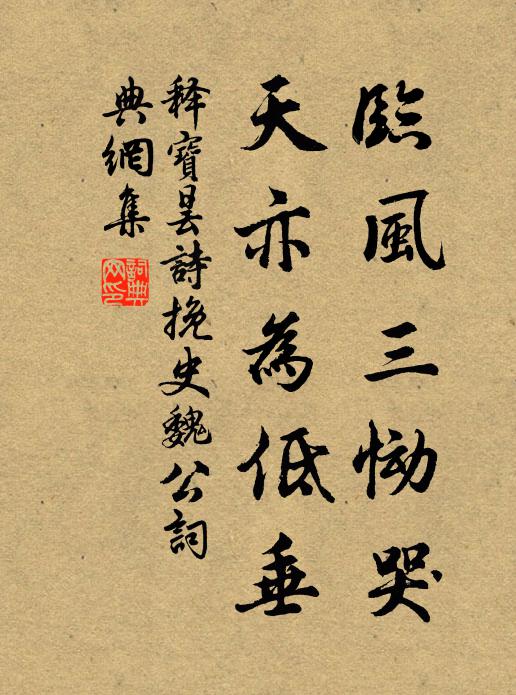 臨風三慟哭
天亦為低垂
释寶曇詩挽史魏公詞
典網集
詞典
网印